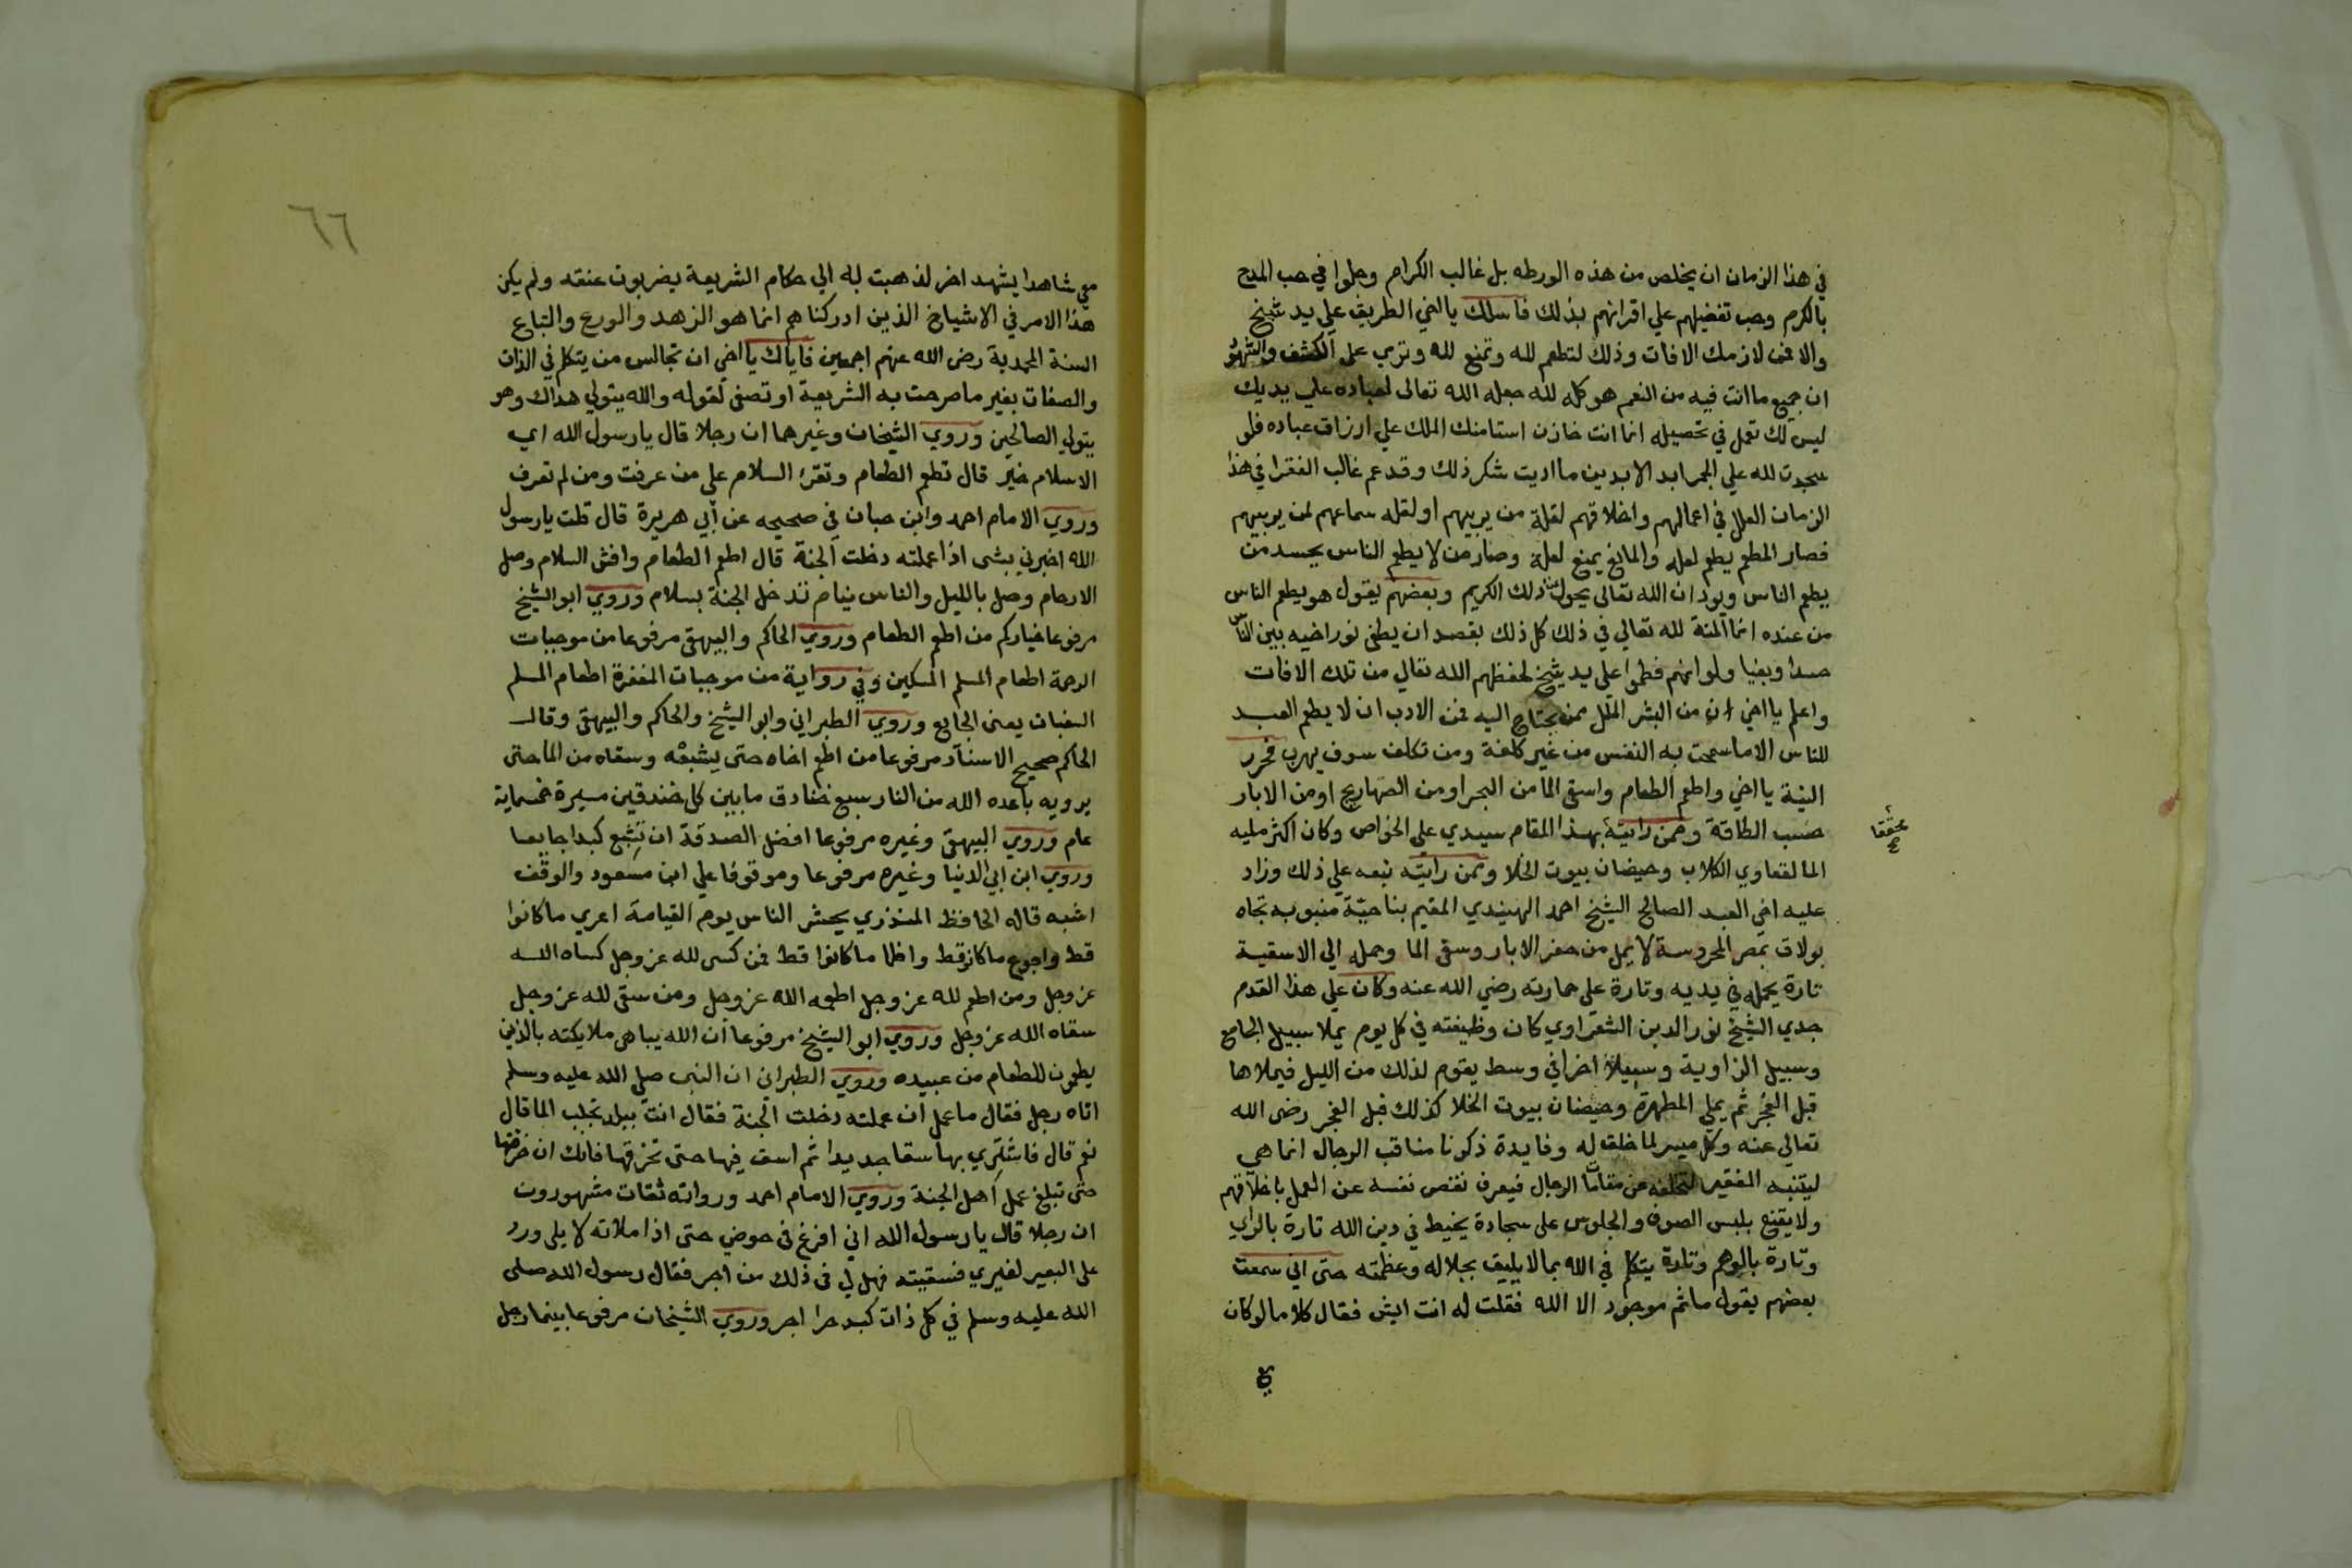 في هذا الزمان ان يخلص من هذه الورطه بل غالب الكرام وحلوا في حب المدح
بالكرم وحب تفضيلهم علي اقرانهم بذلك فاسلك يا اخي الطريق علي يد شيخ
والا فمن لازمك الافات وذلك لتطعم لله وتمنع لله وتري على الكشف والشهود
ان جميع ما انت فيه من النعم هو كله لله جعله الله تعالى لعباده علي يديك
ليس لك تعمل في تحصيله انما انت خازن استامنك الملك علي ارزاق عباده فلو
سجدت لله علي الجمر ابد الابدين ما اديت شكر ذلك وقد عم غالب الفقرا في هذا
الزمان العلل في اعمالهم واخلاقهم لقلة من يربيهم او لقله سماعهم لمن يربيهم
فصار المطعم يطعم لعله والمانع يمنع لعلة وصار من لا يطعم الناس يحسد من
يطعم الناس ويود ان الله تعالى يحول من ذلك الكريم وبعضهم يقول هو يطعم الناس
من عنده انما المنة لله تعالي في ذلك كل ذلك بقصد ان يطفى نور اخيه بين الناس
حسدا وبغيا ولو انهم فطموا على يد شيخ لحفظهم الله تعالي من تلك الافات
واعلم يا اخي ان من البشر الملل ممن يحتاج اليه فمن الادب ان لا يطعم العبد
للناس الا ما سمحت به النفس من غير كلفة ومن تكلف سوف يهرب فحرر
النية يا اخي واطعم الطعام واسق الما من البحر او من الصهاريج او من الابار
حسب الطاقة وممن رايته بهذا المقام سيدي علي الخواص وكان اكثر مليه
محققا
الما لقعاوي الكلاب وحيضان بيوت الخلا وممن رايته تبعه علي ذلك وزاد
عليه اخي العبد الصالح الشيخ احمد الهنيدي المقيم بناحية منبوبه تجاه
بولاق بمصر المحروسة لا يمل من حفر الابار وسقى الما وحمله الي الاسقية
تارة يحمله في يديه وتارة على حمارته رضي الله عنه وكان علي هذا القدم
جدي الشيخ نور الدين الشعراوي كان وظيفته في كل يوم يملا سبيل الجامع
وسبيل الزاوية وسبيلا اخر في وسط يقوم لذلك من الليل فيملاها
قبل الفجر ثم يملي المطهرة وحيضان بيوت الخلا كذلك قبل الفجر رضى الله
تعالي عنه وكل ميسر لما خلق له وفايدة ذكرنا مناقب الرجال انما هي
ليتنبه الفقير لتخلفه عن مقامات الرجال فيعرف نقص نفسه عن العمل باخلاقهم
ولا يقنع بلبس الصوف والجلوس على سجادة يخيط في دين الله تارة بالراي
وتارة بالوهم وتارة يتكلم في الله بما لا يليق بجلاله وعظمته حتى اني سمعت
بعضهم يقول ماثم موجود الا الله فقلت له انت ايش فقال كلاما لو كان
٦٦
معي شاهدا يشهد اخر لذهبت به الي حكام الشريعة يضربون عنقه ولم يكن
هذا الامر في الاشياخ الذين ادركناهم انما هو الزهد والورع واتباع
السنة المحمدية رضى الله عنهم اجمعين فاياك يا اخي ان تجالس من يتكلم في الذات
والصفات بغير ما صرحت به الشريعة او تصغى لقوله والله يتولي هداك وهو
يتولي الصالحين وروي الشيخان وغيرهما ان رجلا قال يا رسول الله اي
الاسلام خير قال تطعم الطعام وتقرئ السلام على من عرفت ومن لم تعرف
وروي الامام احمد وابن حبان في صحيحه عن أبي هريرة قال قلت يا رسول
الله اخبرني بشى اذا عملته دخلت الجنة قال اطعم الطعام وافش السلام وصل
الارحام وصل بالليل والناس نيام تدخل الجنة بسلام وروي ابو الشيخ
مرفوعا خياركم من اطعم الطعام وروي الحاكم والبيهقى مرفوعا من موجبات
الرحمة اطعام المسلم المسكين وفي رواية من موجبات المغفرة اطعام المسلم
السغبان يعنى الجايع وروي الطبراني وابو الشيخ والحاكم والبيهقى وقال
الحاكم صحيح الاسناد مرفوعا من اطعم اخاه حتى يشبعه وسقاه من الما حتى
يرويه باعده الله من النار سبع خنادق ما بين كل خندقين مسيرة خمسماية
عام وروي البيهقى وغيره مرفوعا افضل الصدقة ان تشبع كبدا جايعا
وروي ابن ابي الدنيا وغيره مرفوعا وموقوفا علي ابن مسعود والوقف
اشبه قاله الحافظ المنذري يحشر الناس يوم القيامة اعري ما كانوا
قط واجوع ما كانو قط واظما ما كانوا قط فمن كسى لله عز وجل كساه الله
عز وجل ومن اطعم لله عز وجل اطعمه الله عز وجل ومن سقى لله عز وجل
سقاه الله عز وجل وروي ابو الشيخ مرفوعا ان الله يباهى ملايكته بالذين
يطعمون الطعام من عبيده وروي الطبرانى ان النبى صلي الله عليه وسلم
اتاه رجل فقال ما عمل ان عملته دخلت الجنة فقال انت ببلد تجلب الما قال
نعم قال فاشتري بها سقا جديدا ثم اسق فيها حتى تخرقها فانك ان خرقتها
حتى تبلغ عمل اهل الجنة وروي الامام احمد ورواته ثقات مشهورون
ان رجلا قال يا رسول الله اني افرغ فى حوضي حتى اذا ملاته لابلى ورد
على البعير لغيري فسقيته فهل لي فى ذلك من اجر فقال رسول الله صلى
الله عليه وسلم في كل ذات كبد حرا اجر وروي الشيخان مرفوعا بينما رجل